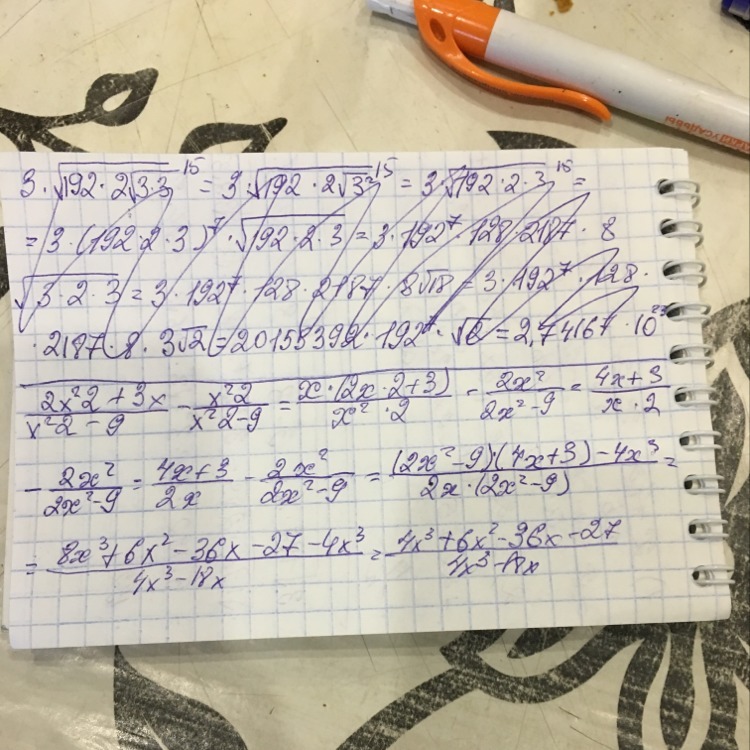 3·√(192·2√3·3)¹⁵ = 3√(192·2√3²)¹⁵ = 3√(192·2·3)¹⁵ =
= 3·(192·2·3)⁷·√(192·2·3) = 3·192⁷·128·2187·8
√(3·2·3) = 3·192⁷·128·2187·8√18 = 3·192⁷·128·
·2187·8·3√2 = 20155392·192⁷·√2 = 2,74167·10²³
(2x²2+3x)/(x²2-9) - (x²2)/(x²2-9) = (x·(2x·2+3))/(x²·2) - (2x²)/(2x²-9) = (4x+3)/(x·2)
- (2x²)/(2x²-9) = (4x+3)/(2x) - (2x²)/(2x²-9) = ((2x²-9)·(4x+3)-4x³)/(2x·(2x²-9)) =
= (8x³+6x²-36x-27-4x³)/(4x³-18x) = (4x³+6x²-36x-27)/(4x³-18x)